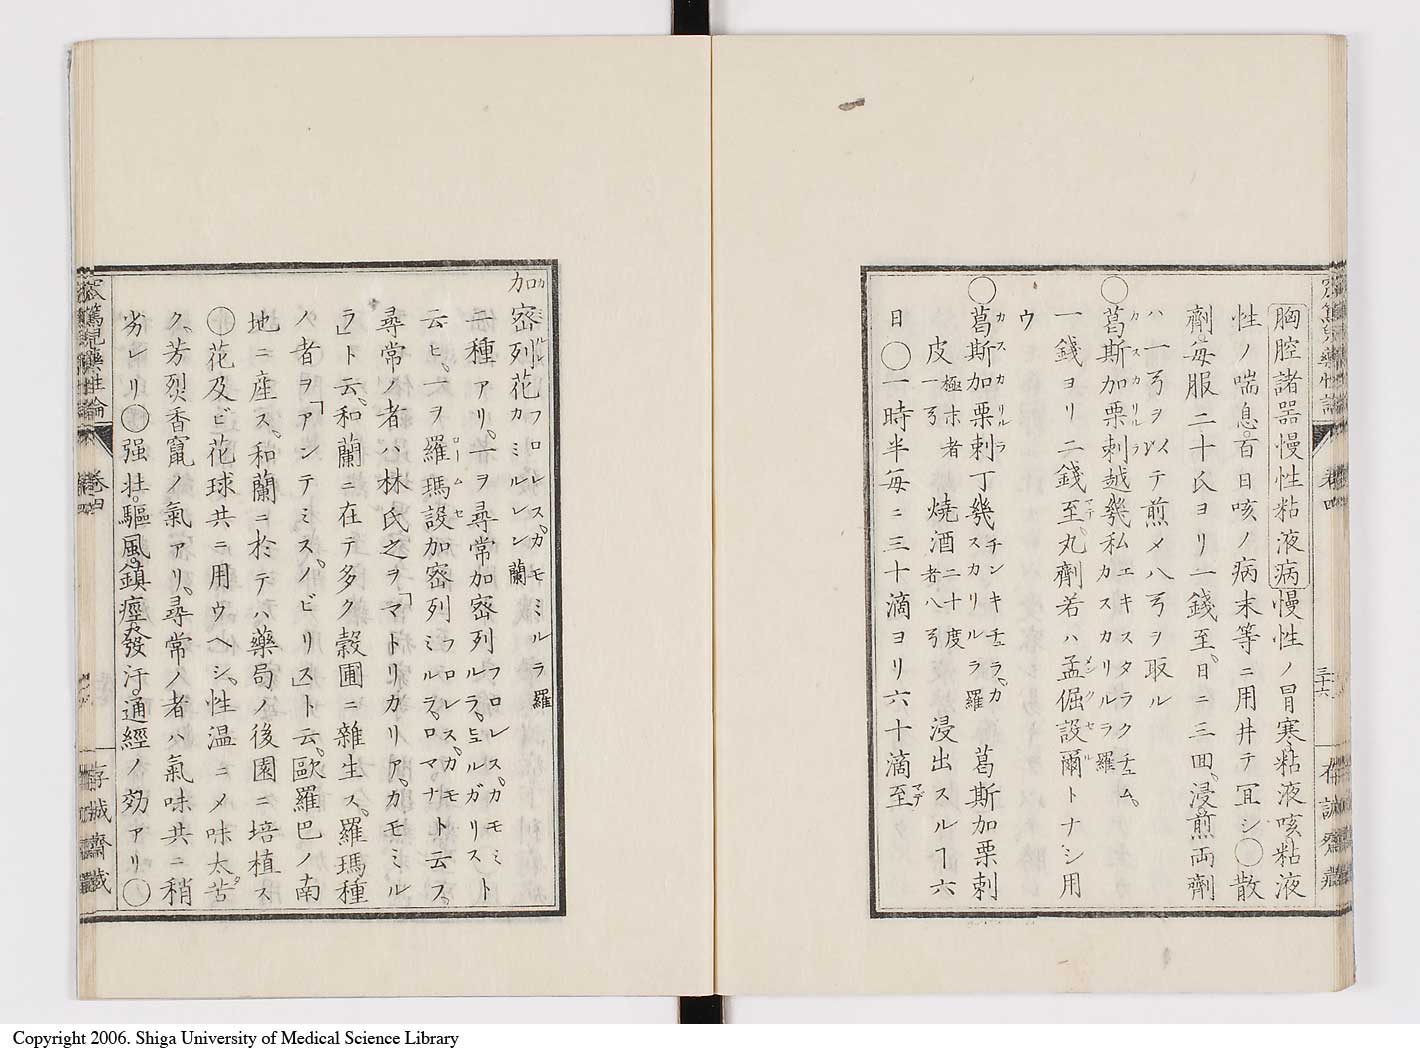 胸腔諸器慢性粘液病慢性ノ冒寒粘液咳粘液
性ノ喘息。百日咳ノ病末等ニ用井テ冝シ〇散
劑毎服二十氏ヨリ一錢至。日ニ三回。浸煎両劑
ハ一弓ヲ以テ煎メ八弓ヲ取ル
〇葛斯加栗刺越幾私カスカリルラエキスタラクチュム。羅
一錢ヨリ二錢至。丸劑若ハ孟倔設爾トナシ用
ウ
〇葛斯加栗刺丁幾チンキチュラ。カスカリルラ羅 葛斯加栗刺
皮極末者一弓 燒酒二十度者八弓 浸出スルヿ六
日〇一時半毎ニ三十滴ヨリ六十滴至
加密列花フロレス。カモミルラ羅 カミルレン蘭
二種アリ。一ヲ尋常加密列フロレス。カモミルラ。ヒュルガリスト
云ヒ。一ヲ羅瑪設加密列フロレス。カモミルラ。ロマナト云フ。
尋常ノ者ハ林氏之ヲ「マトリカリア。カモミル
ラ」ト云。和蘭ニ在テ多ク穀圃ニ雜生ス。羅瑪種
ノ者ヲ「アンテミス。ノビリス」ト云。歐羅巴ノ南
地ニ産ス。和蘭ニ於テハ藥局ノ後園ニ培植ス
〇花及ビ花球共ニ用ウヘシ。性温ニメ味太苦。
ク。芳烈香竄ノ氣アリ。尋常ノ者ハ氣味共ニ稍
劣レリ〇强壯。驅風。鎮痙。發汗。通經ノ効アリ〇
窊篤兒藥性論
卷四
三十六
存誠齋藏
Copyright 2006. Shiga University of Medical Science Library